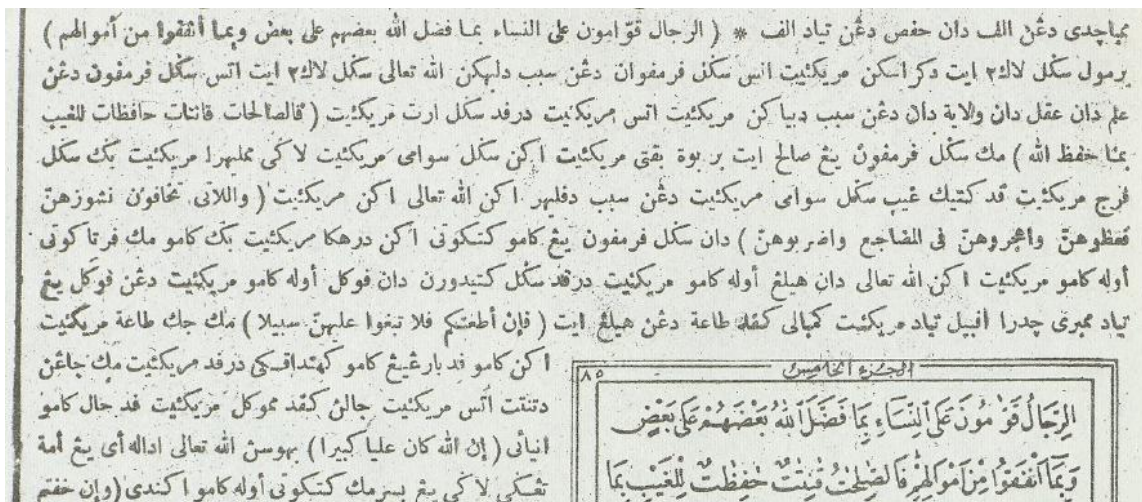 ممباچدى دڠن الف دان حفص دڠن تياد الف * ( الرجال قوّامون على النساء بما فضل الله بعضهم على بعض وبما أنفقوا من أموالهم )
برمول سكل لاك٢ ايت دكراسكن مريكئيت اتس سكل فرمفوان دڠن سبب دلبهكن الله تعالى سكل لاك٢ ايت اتس سكل فرمفون دڠن
علم دان عقل دان ولاية دان دڠن سبب دبياكن مريكئيت اتس مريكئيت درفد سكل ارت مريكئيت ( فالصالحات قانتات حافظات للغيب
بما حفظ الله ) مك سكل فرمفون يڠ صالح ايت بربوة بقتى مريكئيت اكن سكل سوامى مريكئيت لاكى مملهرا مريكئيت بݢ سكل
فرج مريكئيت فد كتيك غيب سكل سوامى مريكئيت دڠن سبب دفلهر اكن الله تعالى اكن مريكئيت ( واللاتى تخافون نشوزهنّ
فعظوهنّ واهجروهنّ فى المضاجع واضربوهنّ ) دان سكل فرمفون يڠ كامو كتكوتى اكن درهكا مريكئيت بݢ كامو مك فرتاكوتى
أوله كامو مريكئيت اكن الله تعالى دان هيلڠ أوله كامو مريكئيت درفد سكل كتيدورن دان فوكل أوله كامو مريكئيت دڠن فوكل يڠ
تياد ممبرى چدرا افبيل تياد مريكئيت كمبالى كفد طاعة دڠن هيلڠ ايت ( فإن أطعنكم فلا تبغوا عليهنّ سبيلا ) مك جك طاعة مريكئيت
اكن كامو فد بارڠيڠ كامو كهنداقكى درفد مريكئيت مك جاڠن
دتنتت اتس مريكئيت جالن كفد مموكل مريكئيت فد حال كامو
انيائى ( إن الله كان عليا كبيرا ) بهوسن الله تعالى اداله أى يڠ أمة
تڠكى لاكى يڠ بسر مك كتكوتى أوله كامو اكندى ( وإن خفتم
الجزء الخامس
٨٥
الرِّجَالُ قَوّٰمُونَ عَلَى النِّسَاءِ بِمَا فَضَّلَ اللهُ بَعْضَهُمْ عَلَى بَعْضٍ
وَبِمَا أَنْفَقُوا مِنْ أَمْوَالِهِمْ فَالصّٰلِحٰتُ قٰنِتٰتٌ حٰفِظٰتٌ لِلْغَيْبِ بِمَا